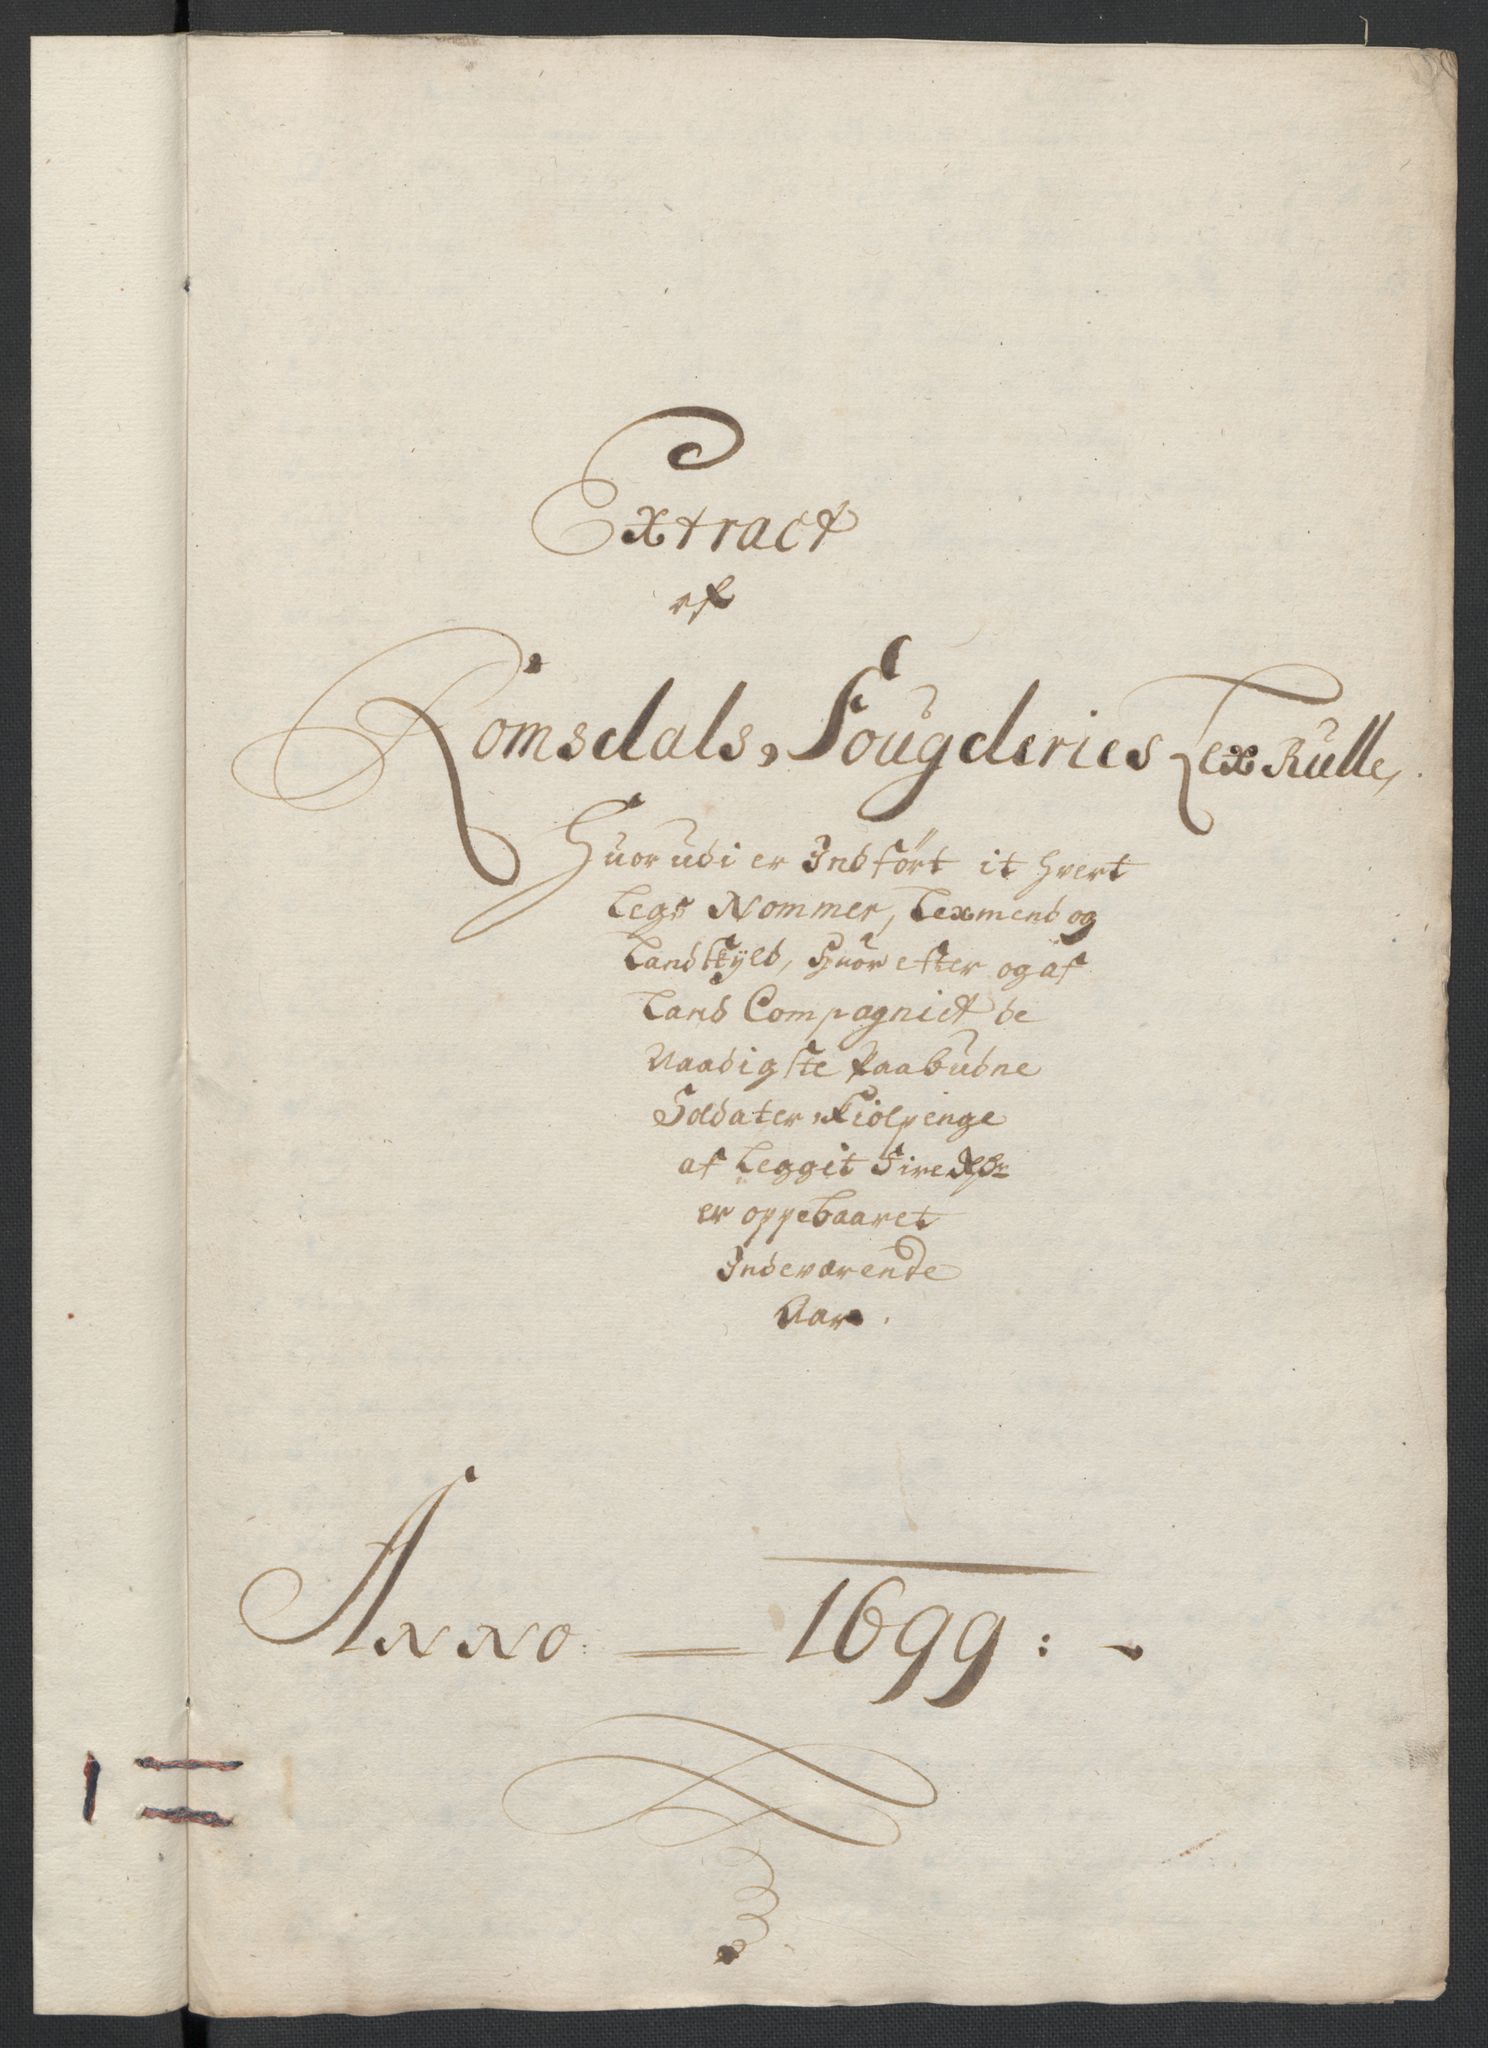 Extract
af
Romsdals Fougderies Lex Rulle,
Huorudi er Indført it hvert
Legs Nommer, Lexmend og
Landskyld, Huor efter og af
Land Compagniet de
Naadigste Paabudne
Soldater
af Legget Fire Rdr
er oppebaaret
Indeværende
Aar.
Anno: — 1699: